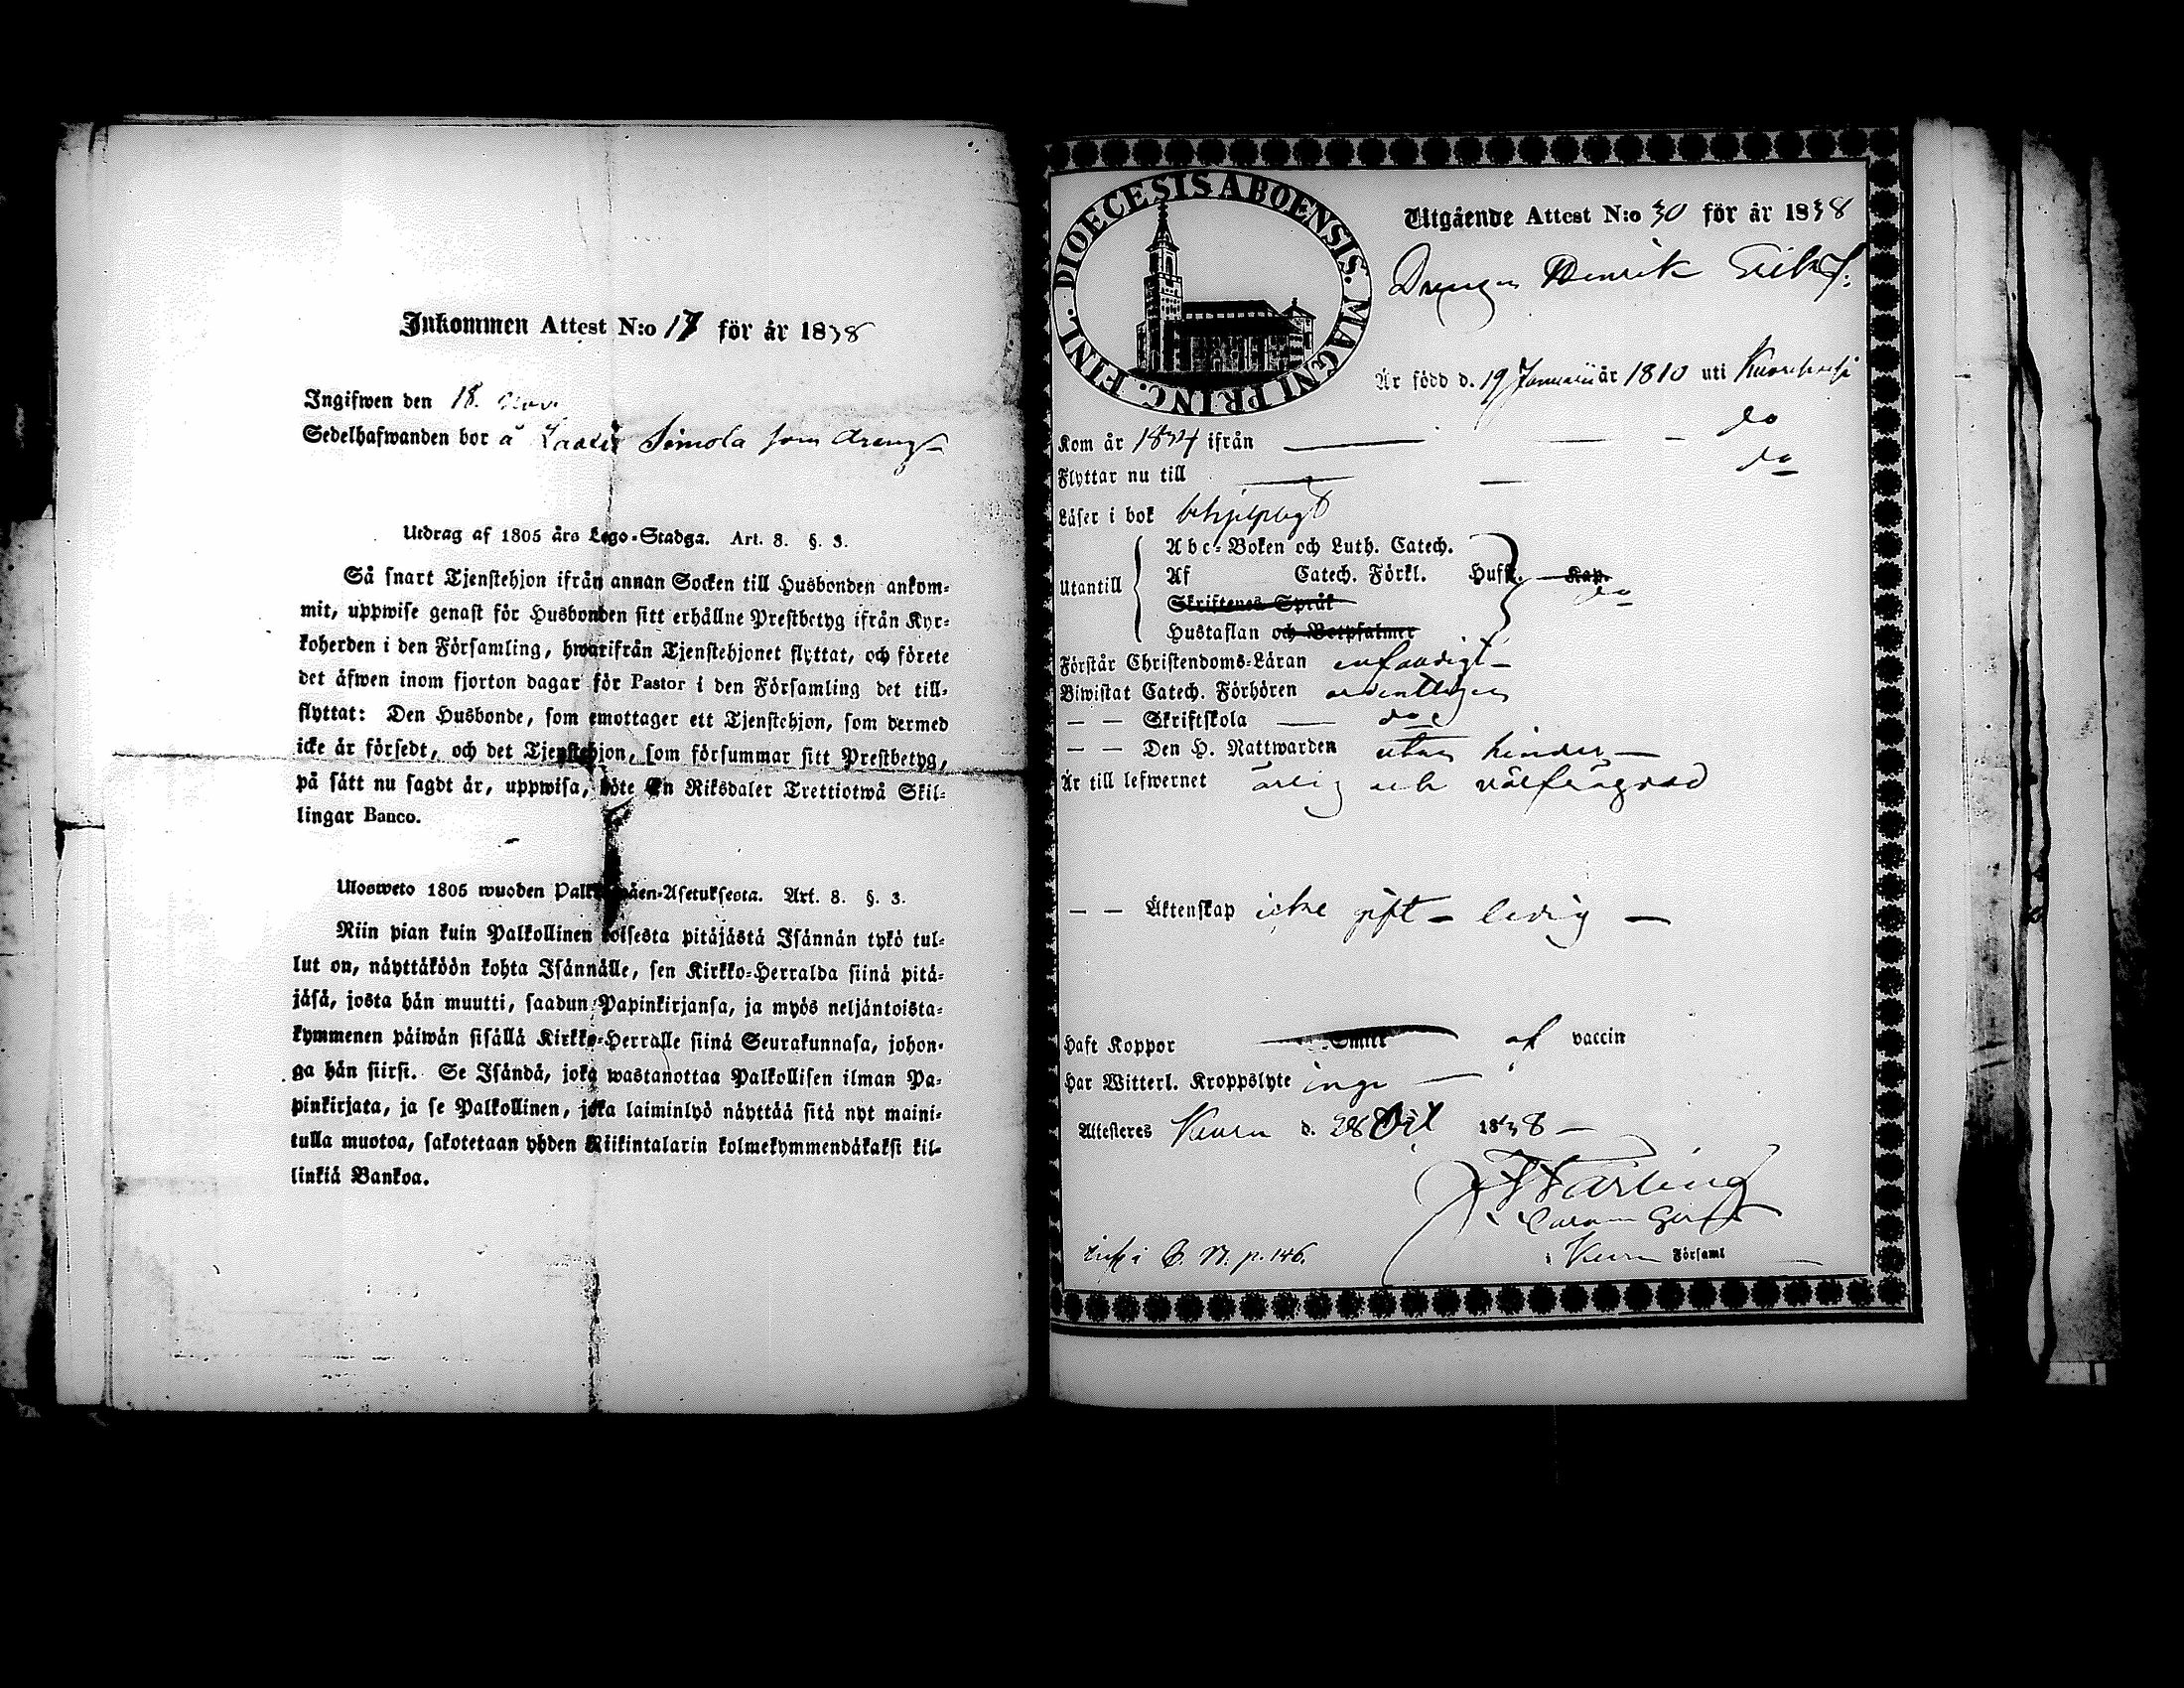 Inkommen Attest N:o 17 för år 1838
Ingifwen den 18. Nov.
Sedelhafwanden bor å Simola som dräng
Utdrag af 1805 års Lego-Stadga. Art. 8. §. 3.
Så snart Tjenstehjon ifrån annan Socken till Husbonden ankom-
mit, uppwise genast för Husbonden sitt erhållne Prestbetyg ifrån Kyr-
koherden i den Församling, hwarifrån Tjenstehjonet flyttat, och förete
det äfwen inom fjorton dagar för Pastor i den Församling det till-
flyttat: Den Husbonde, som emottager ett Tjenstehjon, som dermed
icke är försedt, och det Tjenstehjon, som försummar sitt Prestbetyg,
på sätt nu sagdt är, uppwisa, böte En Riksdaler Trettiotwå Skil-
lingar Banco.
Ulosweto 1805 wuoden Palkollisen-Asetuksesta. Art. 8. §. 3.
Niin pian kuin Palkollinen toisesta pitäjästä Isännän tykö tul-
lut on, näyttäköön kohta Isännälle, sen Kirkko-Herralda siinä pitä-
jäsä, josta hän muutti, saadun Papinkirjansa, ja myös neljäntoista-
kymmenen päiwän sisällä Kirkko-Herralle siinä Seurakunnasa, johon-
ga hän siirsi. Se Isändä, joka wastanottaa Palkollisen ilman Pa-
pinkirjata, ja se Palkollinen, joka laiminlyö näyttää sitä nyt maini-
tulla muotoa, sakotetaan yhden Riikintalarin kolmekymmendäkaksi kil-
linkiä Bankoa.
DIOECESIS ABOENSIS. MAGNI PRINC. FINL.
Utgående Attest N:o 30 för år 1838
Drengen Henrik Eriks S.
Är född d. 19 Januarii år 1810 uti
Kom år 1834 ifrån do
Flyttar nu till do
Läser i bok behjelpligt
Abc-Boken och Luth. Catech.
Utantill Af Catech. Förkl. Husf. Kap. do
Skriftenes Språk
Hustaflan och Botpsalmer
Förstår Christendoms-Läran enfaldigt
Biwistat Catech. Förhören ordentligen
— — Skriftskola do
— — Den H. Nattwarden utan hinder
Är till lefwernet ärlig och välfrägdad
— — Äktenskap icke gift - ledig —
Haft Koppor Smitt af vaccin
Har Witterl. Kroppslyte inga
Attesteres Keuru d. 28 Oct 1838
i Keuru Församl
Inf. i C. B. p. 146.